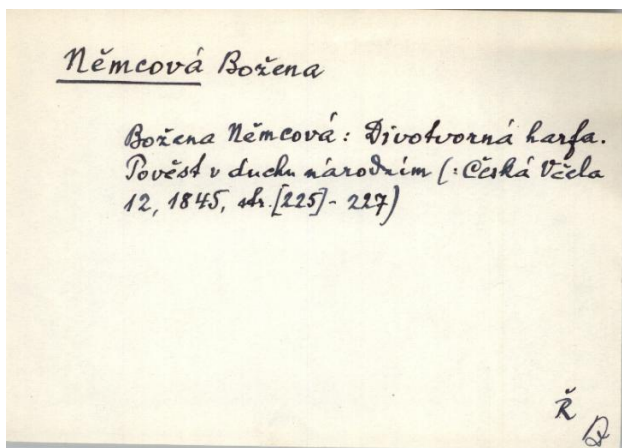 Němcová Božena
Božena Němcová: Divotvorná harfa.
Pověst v duchu národním (: Česká Včela
12, 1845, str. [225] - 227)
Ř